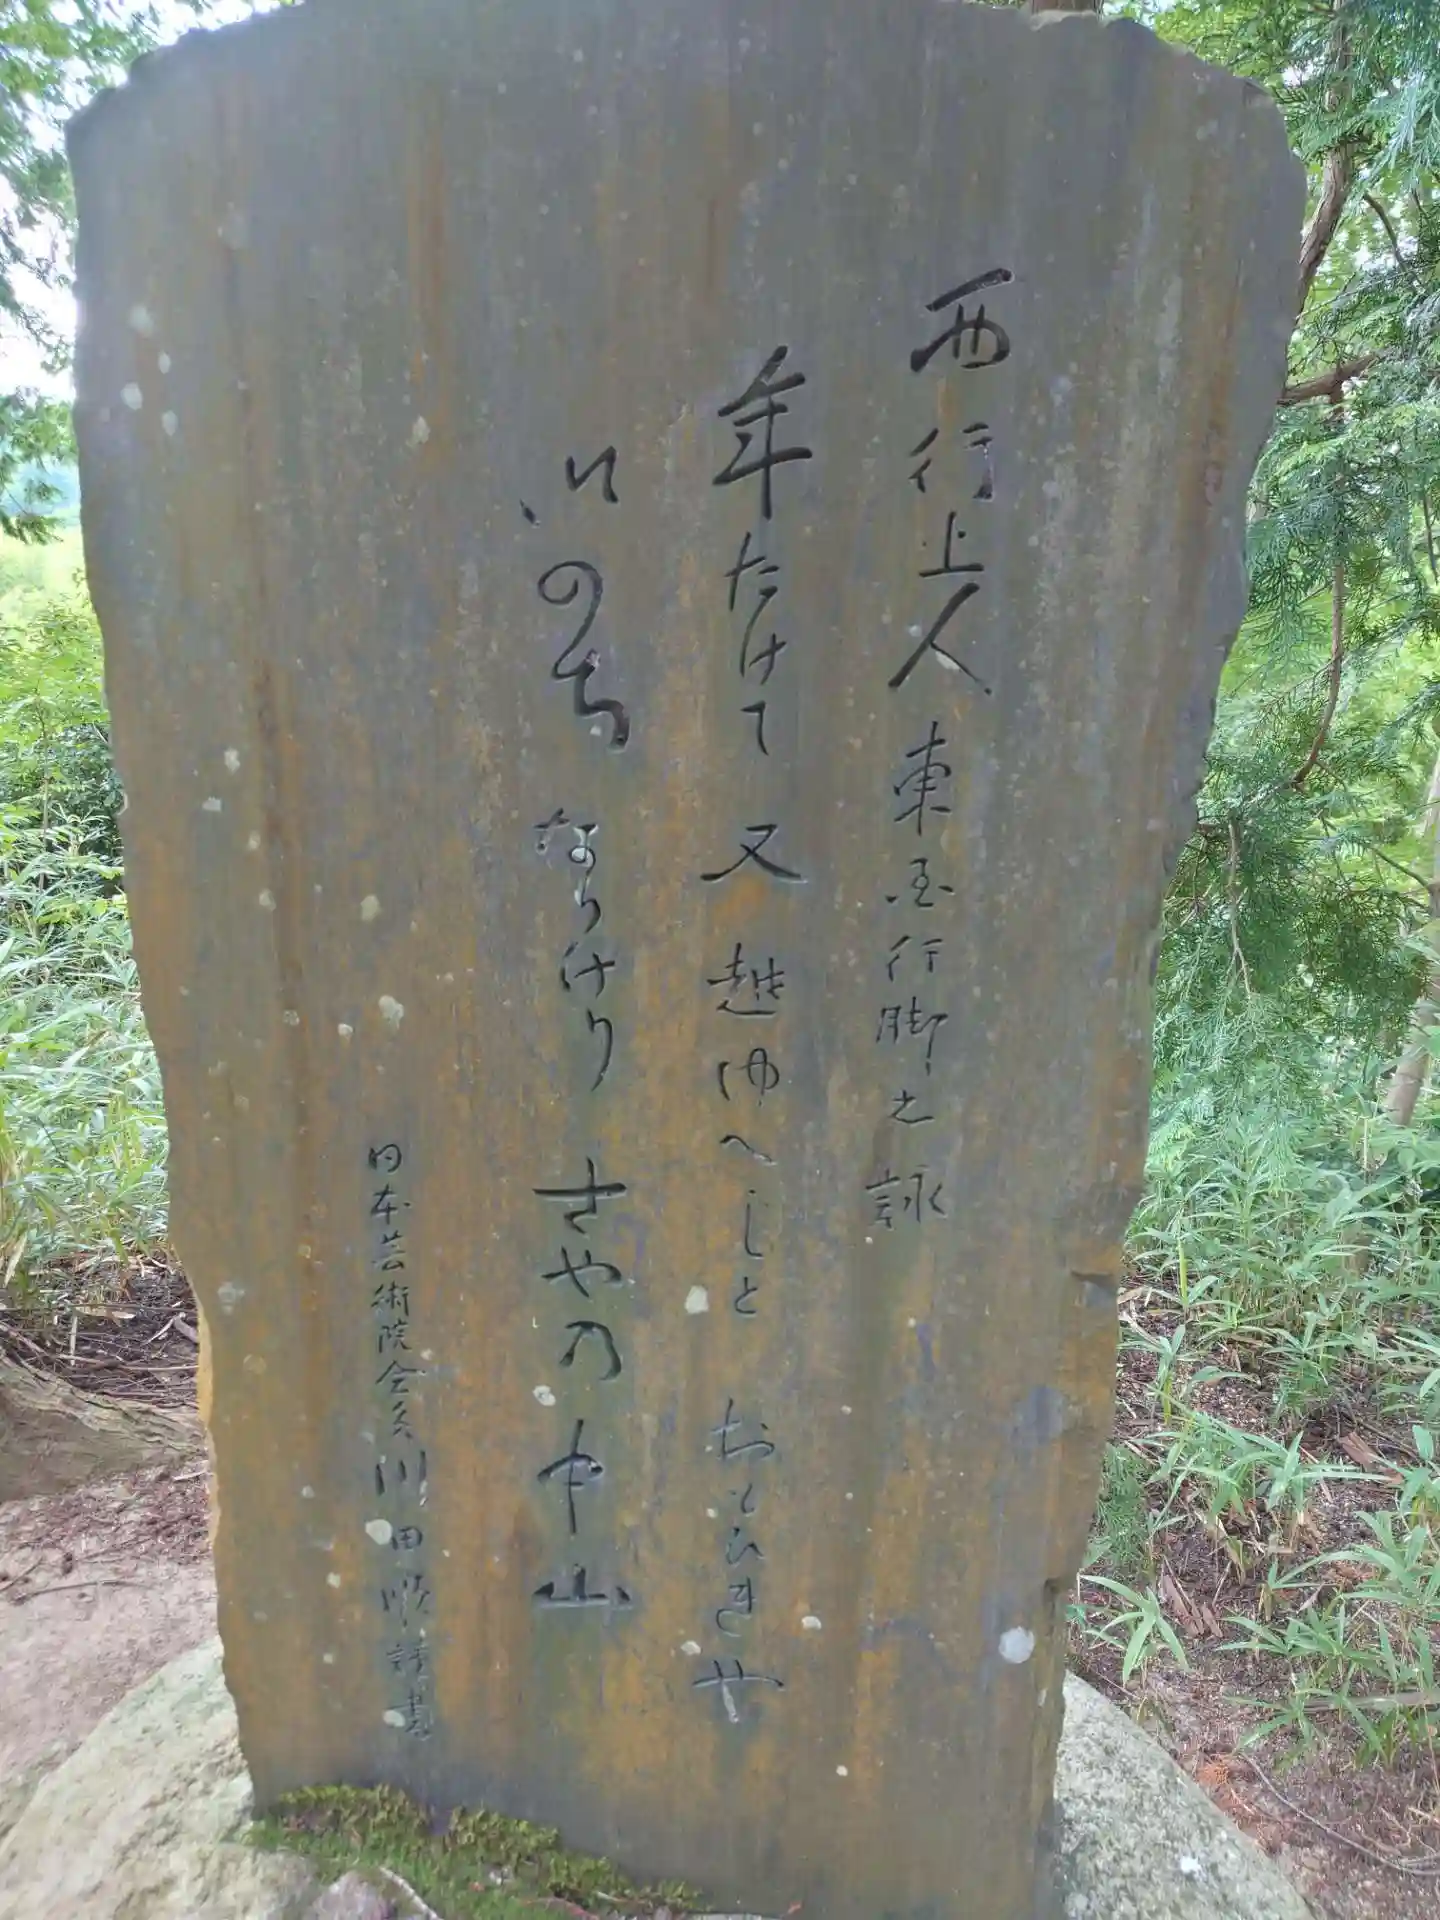 西行上人東国行脚之詠
年たけて又越ゆへしとおもひきや
いのちなりけりさや乃中山
日本芸術院会員川田順謹書